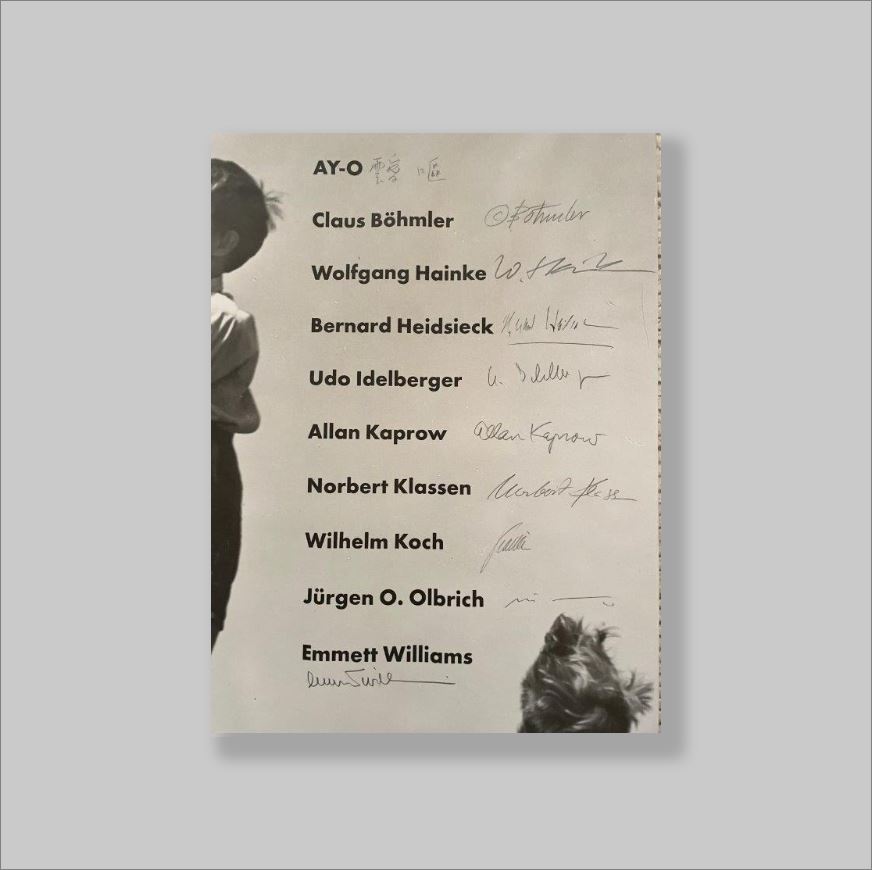 AY-O 靉嘔
Claus Böhmler ©Böhmler
Wolfgang Hainke W. Hainke
Bernard Heidsieck
Udo Idelberger U. Idelberger
Allan Kaprow Allan Kaprow
Norbert Klassen Norbert Klassen
Wilhelm Koch
Jürgen O. Olbrich
Emmett Williams